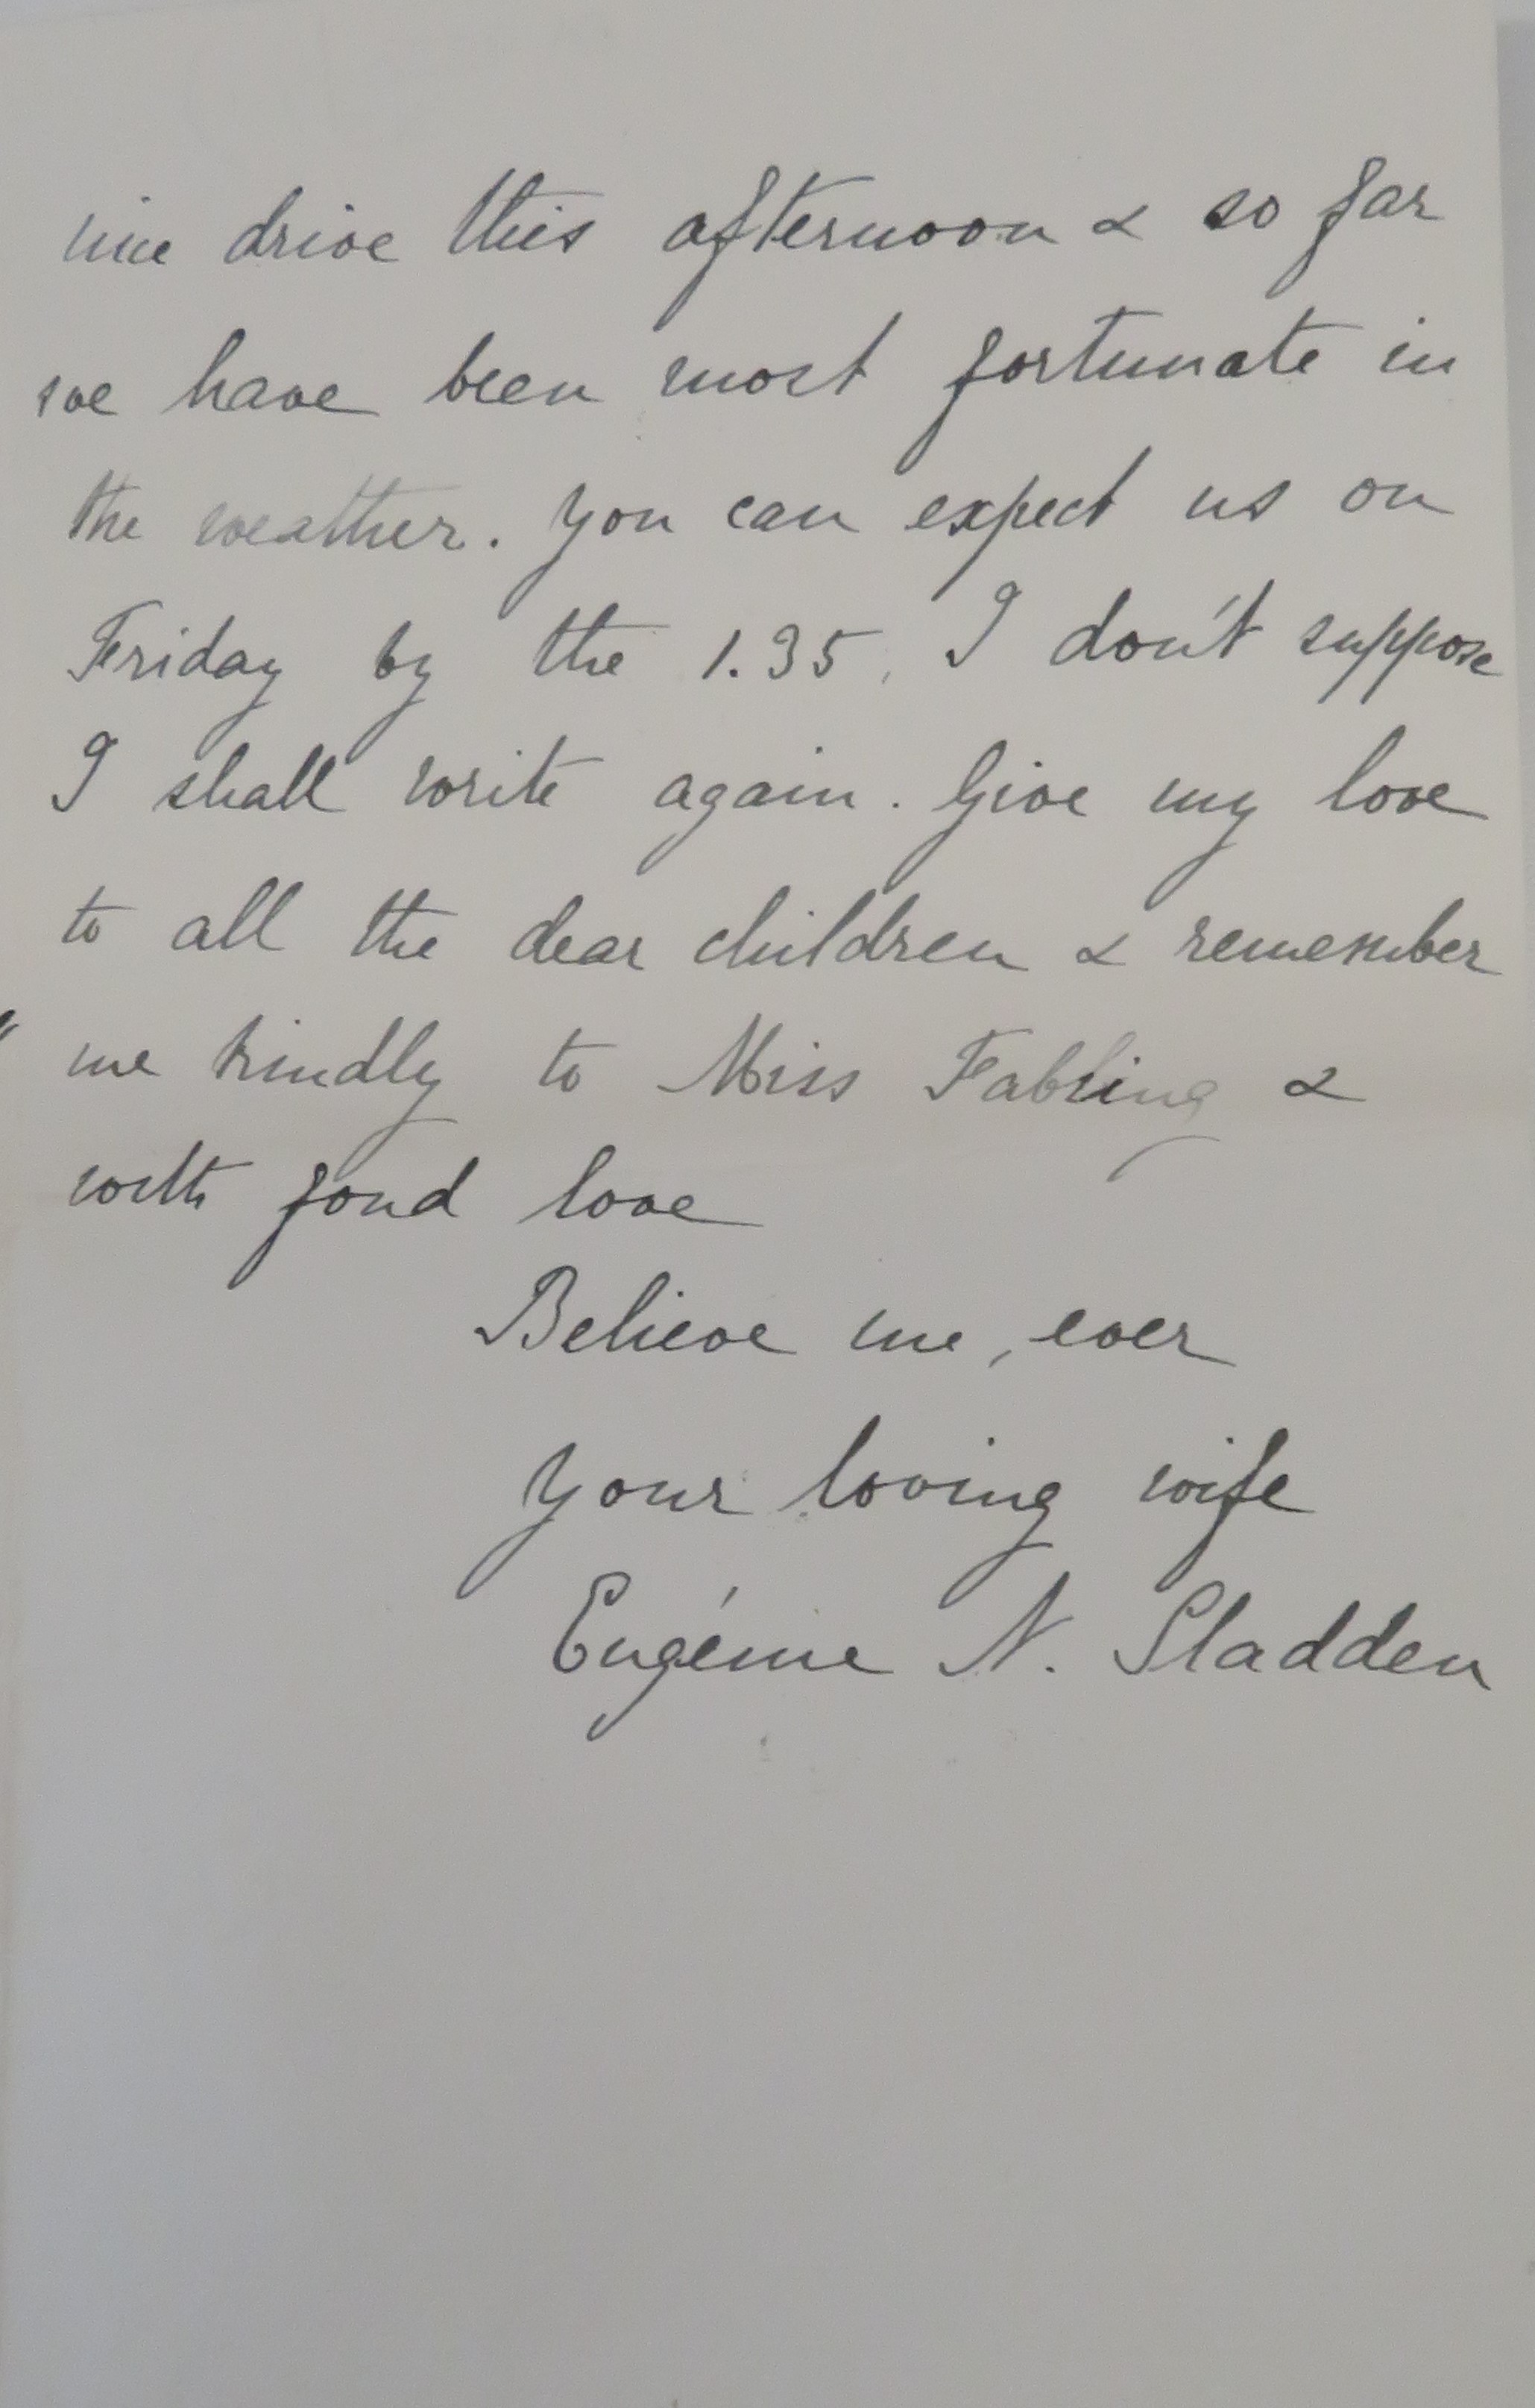 nice drive this afternoon & so far
we have been most fortunate in
the weather. You can expect us on
Friday by the 1.35. I don't suppose
I shall write again. Give my love
to all the dear children & remember
me kindly to Miss Fabling &
with fond love
Believe me, ever
Your loving wife
Eugénie N. Sladden